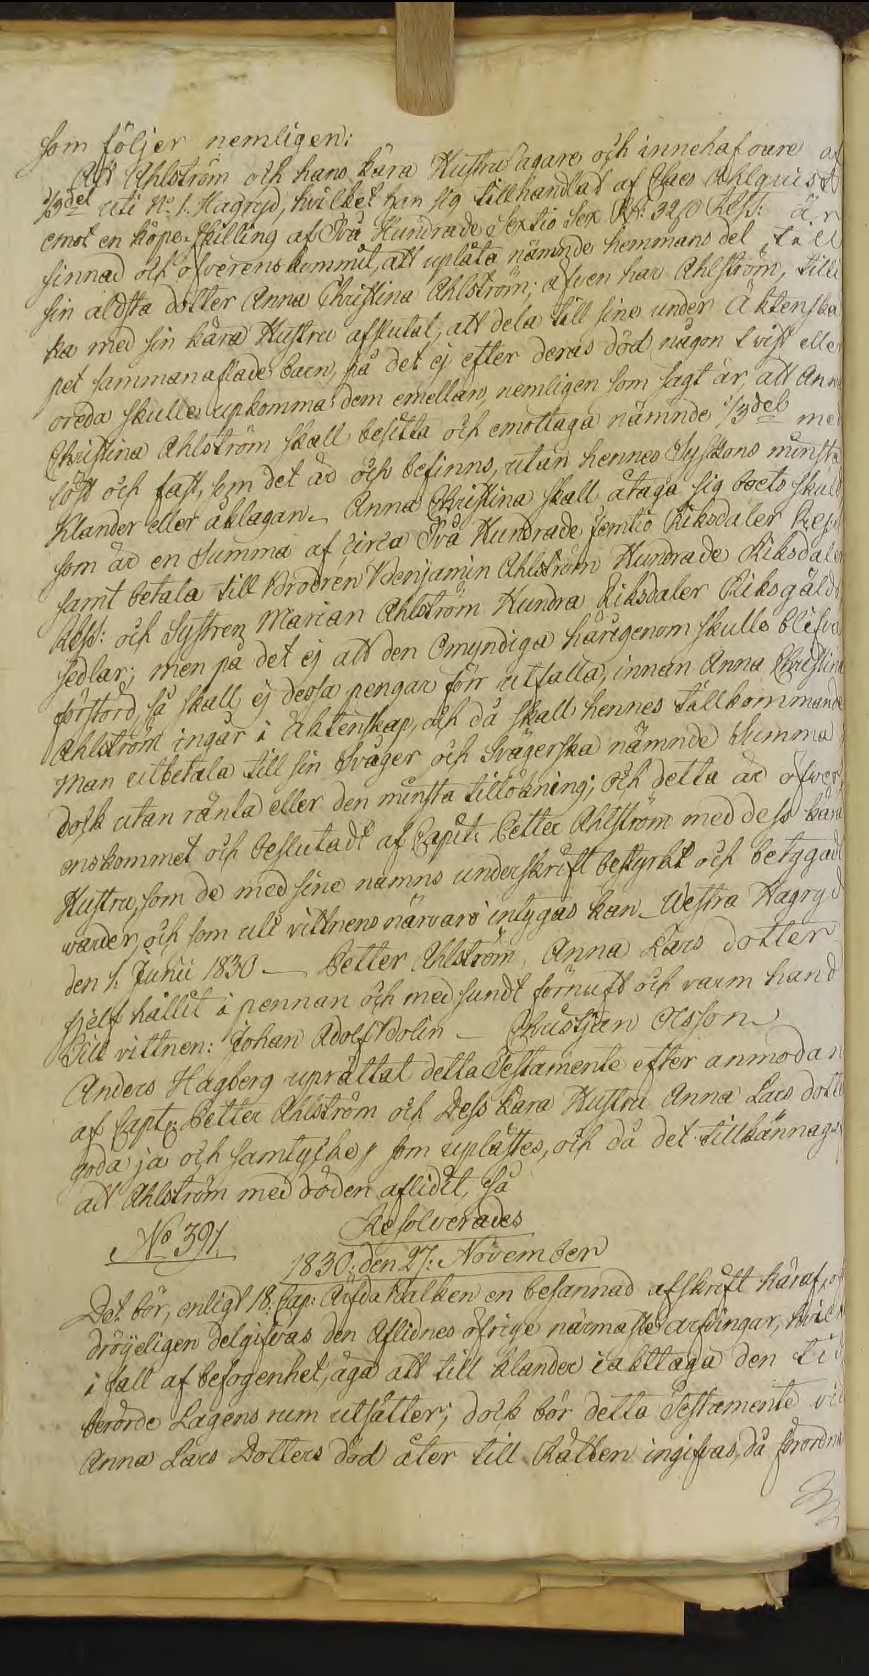 som följer nemligen:
Att Ahlström och hans kära Hustru ägare och innehafvare af
1/3 del uti No 1. Hagryd, hvilket han sig tillhandlat af Claes Ahlquist
emot en köpe-Skilling af Två Hundrade Sextio Sex Rd: 32 s Rgs: är
sinnad och öfverenskommit, att uplåta nämnde hemmans del till
sin äldsta dotter Anna Christina Ahlström; äfven har Ahlström, tilli
ka med sin kära Hustru afslutat, att dela till sine under Äktenska
pet sammanaflade barn, på det ej efter deras död någon tvist elle
oreda skulle upkomma dem emellan, nemligen som sagt är, att Ann
Christina Ahlström skall besitta och emottaga nämnde 1/3 del me
löst och fast, som det är och befinns, utan hennes Syskons minsta
klander eller åklagan. Anna Christina skall åtaga sig boets skuld
som är en Summa af circa Två Hundrade femtio Riksdaler
samt betala till Brodren Benjamin Ahlström Hundrade Riksdaler
Rgs: och Systren Marian Ahlström Hundra Riksdaler Riksgälds
sedlar; men på det ej att den Omyndiga härigenom skulle blifva
förstörd, så skall ej dessa pengar förr utfalla, innan Anna Christina
Ahlström ingår i Äktenskap, och då skall hennes tillkommande
Man utbetala till sin Svåger och Svägerska nämnde Summa
dock utan ränta eller den minsta tillökning; och detta är öfver
enskommet och beslutadt af Capit: Petter Ahlström med dess kära
Hustru, som de med sine namns underskrift bestyrkt och betyggadt
warder, och som uti vittnens närvaro intygas kan. Westra Hagryd
den 1. Junii 1830 — Petter Ahlström, Anna Lars dotter
sjelf hållit i pennan och med sundt förnuft och varm hand
Till vittnen: Johan Adolf Bolin — Christian Olsson
Anders Hagberg uprättat detta Testamente efter anmodan
af Capt: Petter Ahlström och Dess kära Hustru Anna Lars dotte
goda ja och samtycke, som uplästes, och då det tillkännags,
att Ahlström med döden aflidit, så
Resolverades
No 391.
1830. den 27. November
Det bör, enligt 18. Cap: Ärfda Balken en besannad afskrift häraf, o
dröjeligen delgifvas den Aflidnes öfrige närmaste arfvingar, hvilk
i fall af befogenhet, äga att till klander iakttaga den tid
berörde Lagens rum utsätter; dock bör detta Testamente vi
Anna Lars Dotters död åter till Rätten ingifvas, då förordna